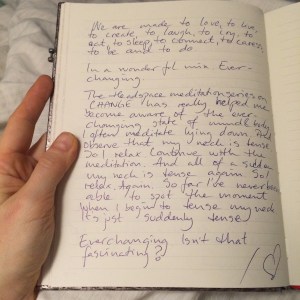 We are made to love, to live,
to create, to laugh, to cry, to
eat, to sleep, to connect, to care,
to be and to do
In a wonderful mix. Ever-
changing.
The Headspace meditation series on
CHANGE has really helped me
become aware of the ever
changing state of
I often meditate lying down. And
observe that my neck is tense
So I relax. Continue with the
meditation. And all of a sudden
my neck is tense again. So I
relax. Again. So far I've never been
able to spot the moment
when I begin to tense my neck
It's just suddenly tense
Everchanging. Isn't that
fascinating?!